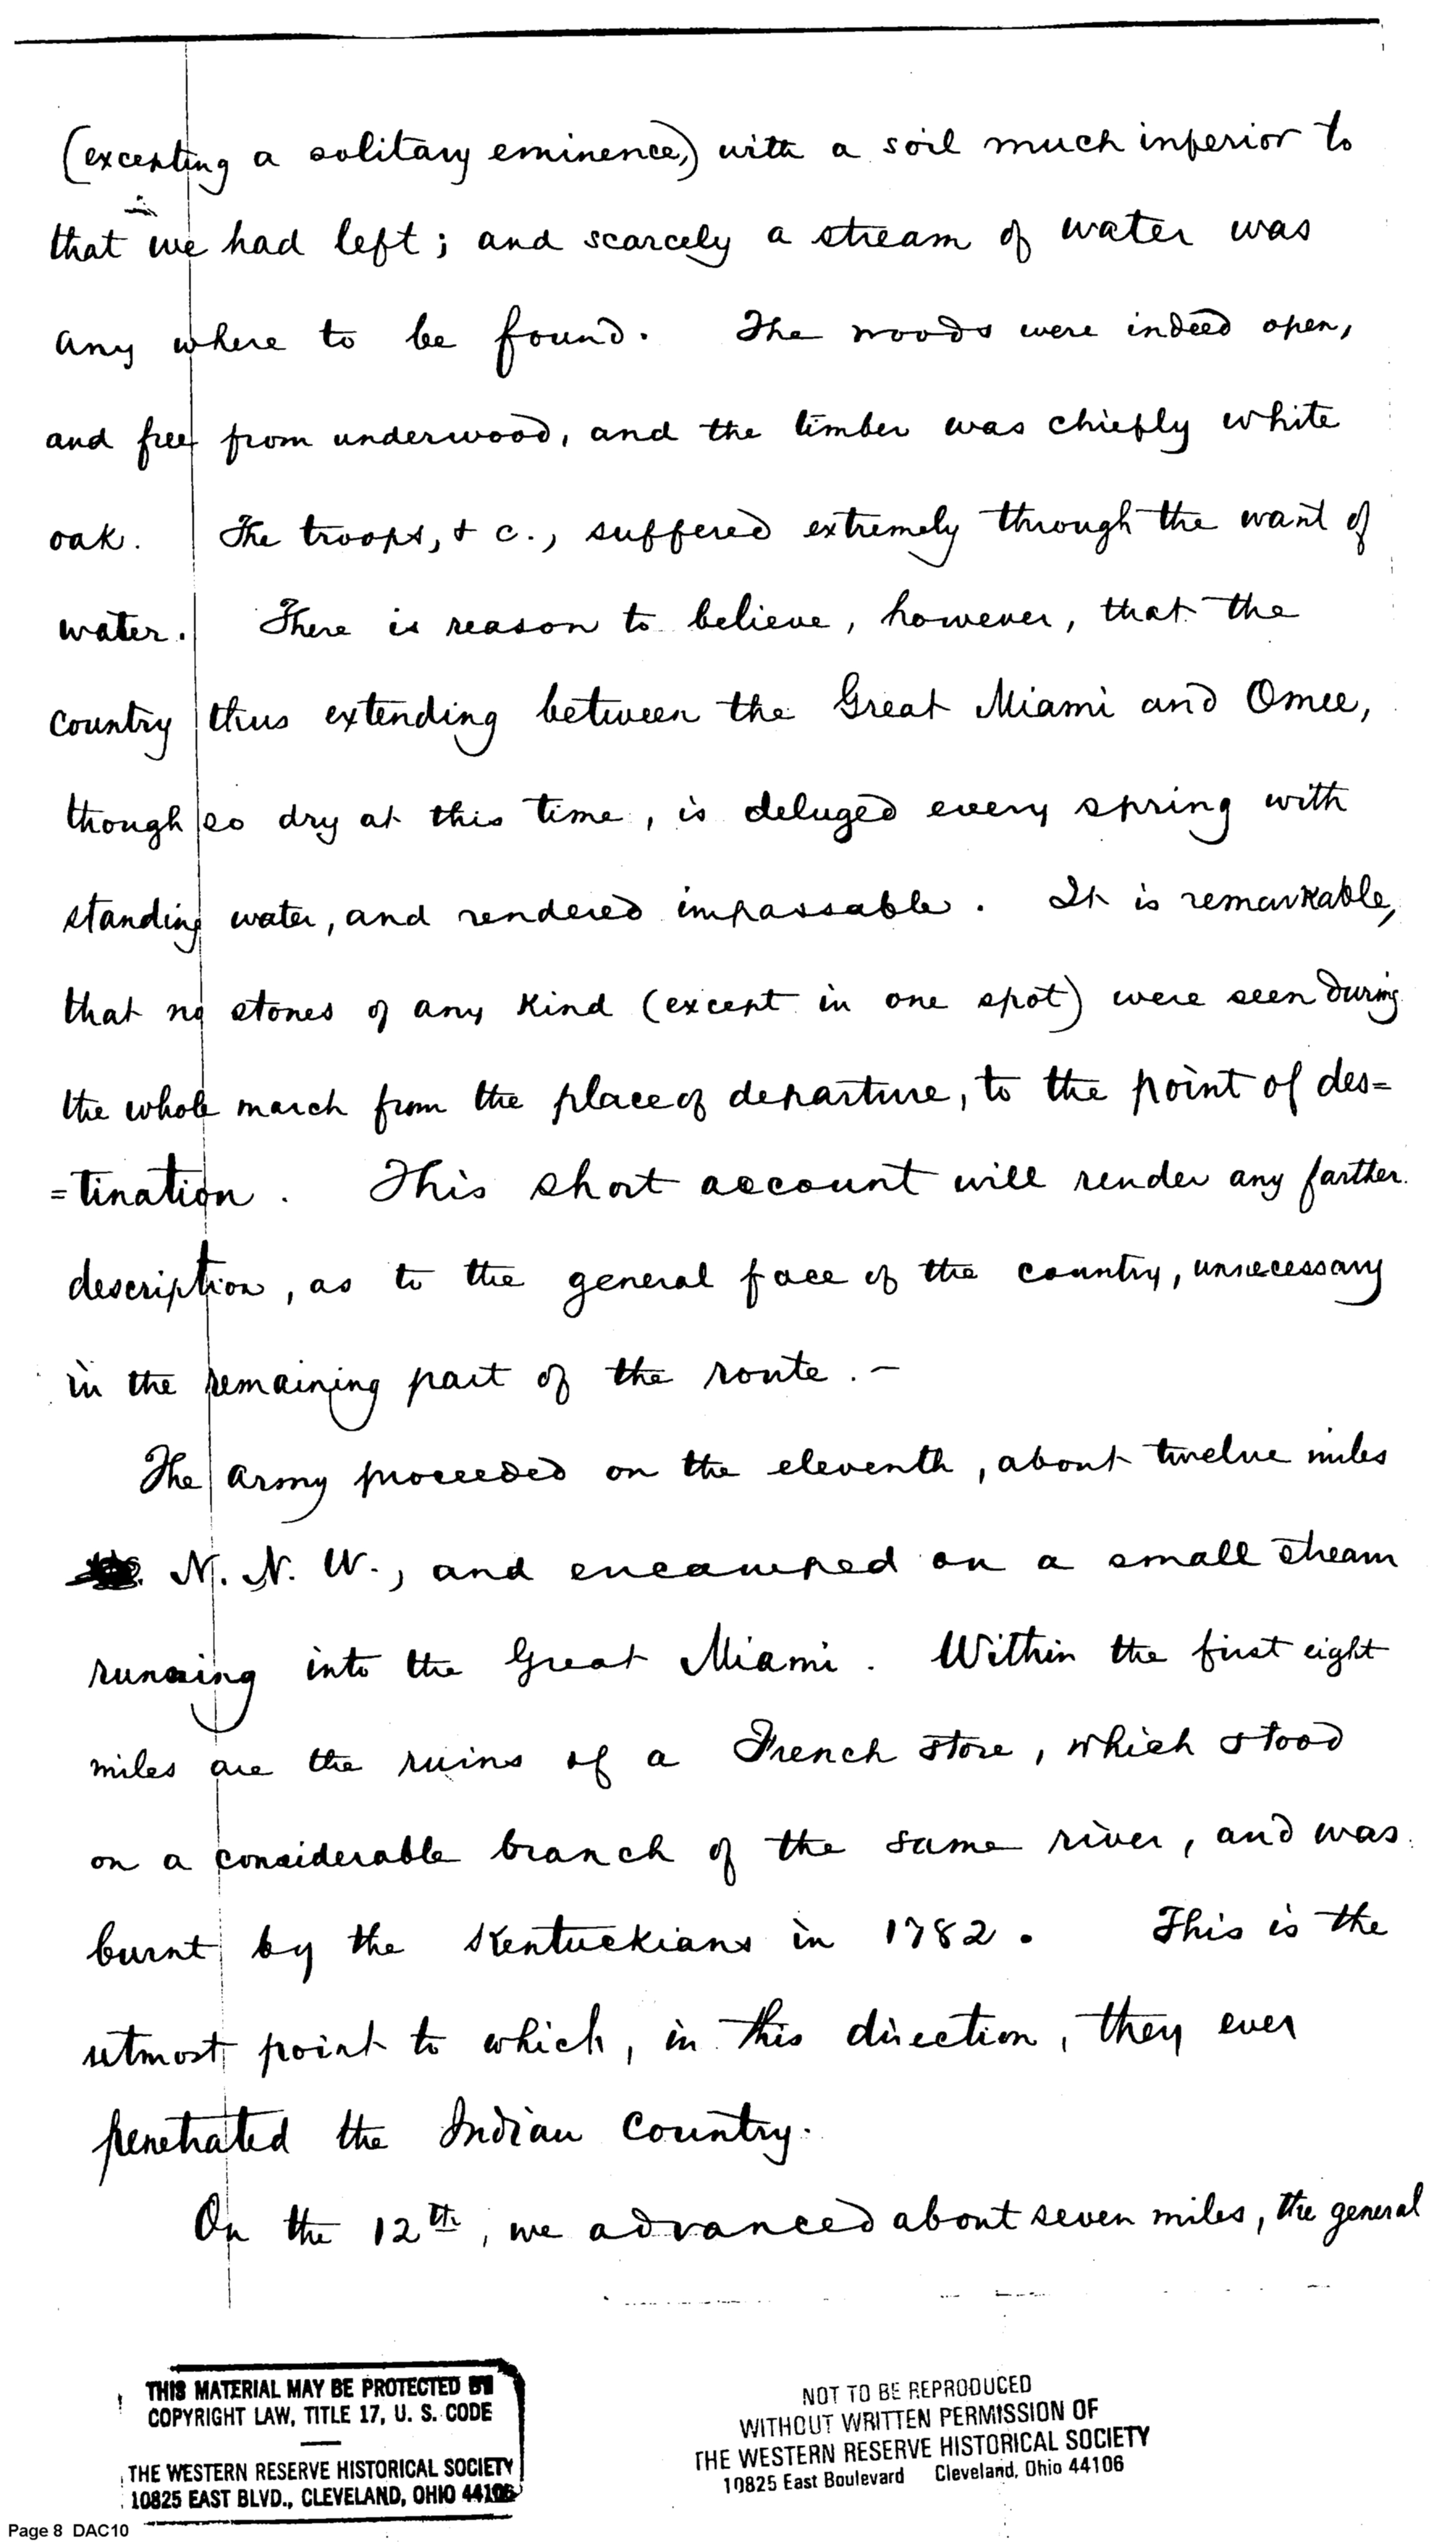 (excepting a solitary eminence,) with a soil much inferior to
that we had left; and scarcely a stream of water was
any where to be found. The woods were indeed open,
and free from underwood, and the timber was chiefly white
oak. The troops, & c., suffered extremely through the want of
water. There is reason to believe, however, that the
country thus extending between the Great Miami and Omee,
though so dry at this time, is deluged every spring with
standing water, and rendered impassable. It is remarkable,
that no stones of any kind (except in one spot) were seen during
the whole march from the place of departure, to the point of des=
=tination. This short account will render any farther
description, as to the general face of the country, unnecessary
in the remaining part of the route. —
The army proceeded on the eleventh, about twelve miles
N. N. W., and encamped on a small stream
running into the Great Miami. Within the first eight
miles are the ruins of a French store, which stood
on a considerable branch of the same river, and was
burnt by the Kentuckians in 1782. This is the
utmost point to which, in this direction, they ever
penetrated the Indian Country.
On the 12th, we advanced about seven miles, the general
THIS MATERIAL MAY BE PROTECTED BY
COPYRIGHT LAW, TITLE 17, U. S. CODE
THE WESTERN RESERVE HISTORICAL SOCIETY
10825 EAST BLVD., CLEVELAND, OHIO 44106
NOT TO BE REPRODUCED
WITHOUT WRITTEN PERMISSION OF
THE WESTERN RESERVE HISTORICAL SOCIETY
10825 East Boulevard Cleveland, Ohio 44106
Page 8 DAC10